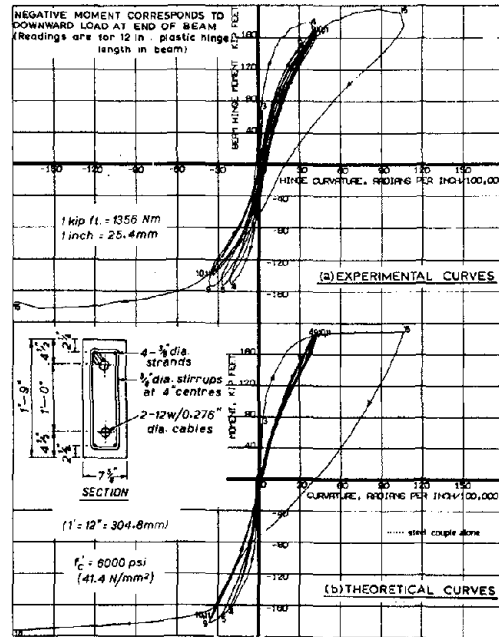 NEGATIVE MOMENT CORRESPONDS TO
DOWNWARD LOAD AT END OF BEAM
(Readings are for 12 in. plastic hinge
length in beam)
BEAM HINGE MOMENT KIP FEET
160
120
80
40
-180
-120
-90
-60
-30
30
60
90
120
150
HINGE CURVATURE, RADIANS PER INCH/100,000
-40
-80
-120
-160
1 kip ft. = 1356 Nm
1 inch = 25.4mm
(a) EXPERIMENTAL CURVES
4 - 3/8" dia.
strands
stirrups
at 4" centres
2-12w/0.276"
dia. cables
1'-9"
4½"
1'-0"
4½"
SECTION
(1' = 12" = 304.8mm)
f'c = 6000 psi
(41.4 N/mm²)
MOMENT, KIP FEET
160
120
80
40
30
60
90
120
150
CURVATURE, RADIANS PER INCH/100,000
steel couple alone
-40
-80
-120
-160
(b) THEORETICAL CURVES